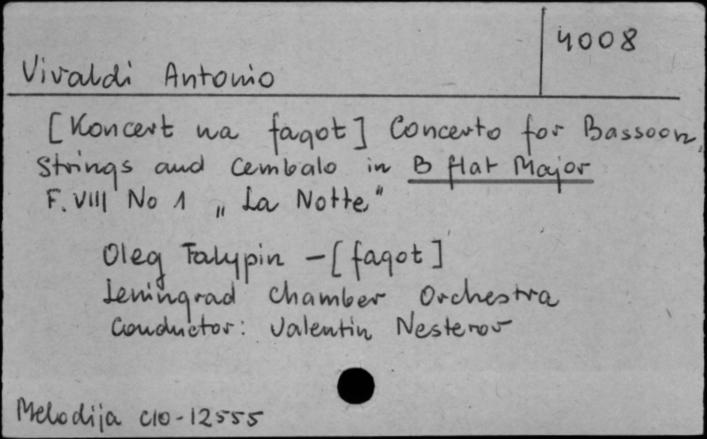 4008
Vivaldi Antonio
[Koncert na fagot] Concerto for Bassoon,
Strings and Cembalo in B flat Major
F. VIII No 1 „La Notte"
Oleg Talypin - [fagot]
Leningrad Chamber Orchestra
Conductor: Valentin Nesterov
Melodija C10-12555